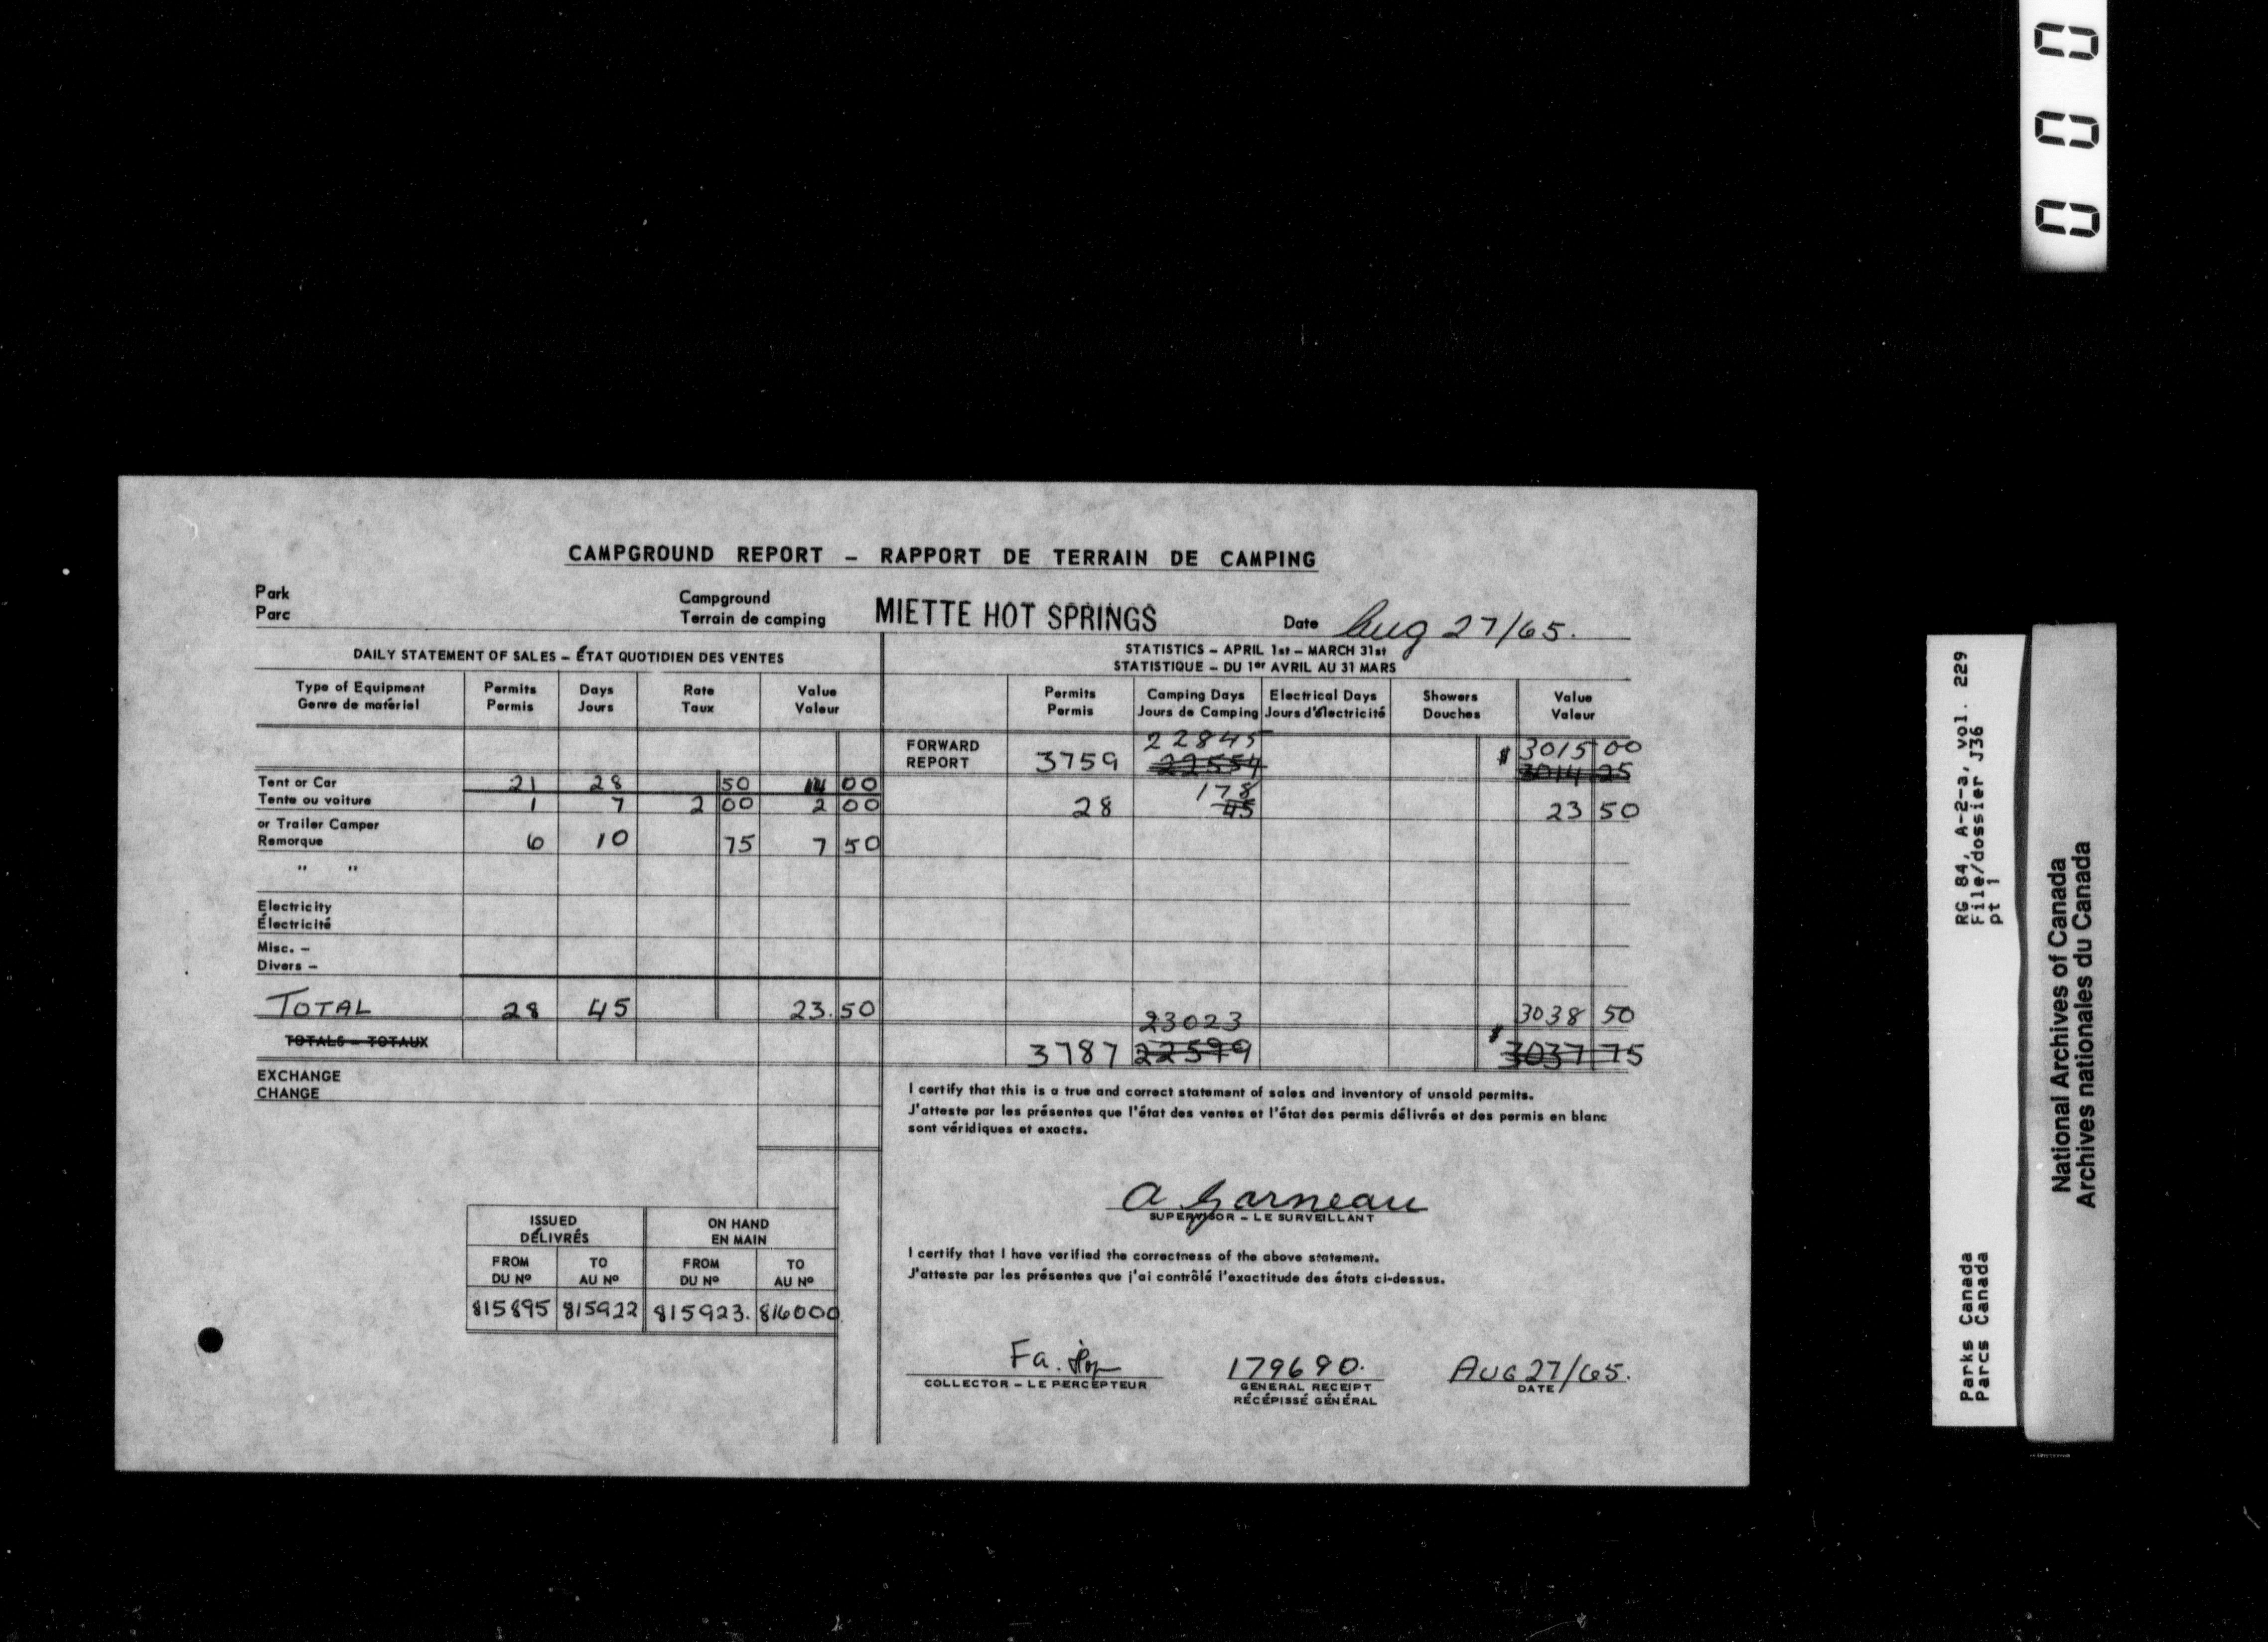 000
CAMPGROUND REPORT – RAPPORT DE TERRAIN DE CAMPING
Park
Parc
Campground
Terrain de camping
MIETTE HOT SPRINGS
Date Aug 27/65.
DAILY STATEMENT OF SALES – ÉTAT QUOTIDIEN DES VENTES
STATISTICS – APRIL 1st – MARCH 31st
STATISTIQUE – DU 1er AVRIL AU 31 MARS
Type of Equipment Permits Days Rate Value
Genre de matériel Permis Jours Taux Valeur
Permits Camping Days Electrical Days Showers Value
Permis Jours de Camping Jours d'électricité Douches Valeur
FORWARD 22845 $ 3015 00
REPORT 3759 22554 3014 25
Tent or Car 21 28 50 14 00
Tente ou voiture 1 7 2 00 2 00
178
28 45 23 50
or Trailer Camper
Remorque 6 10 75 7 50
" "
Electricity
Électricité
Misc. –
Divers –
TOTAL 28 45 23.50
23023 3038 50
TOTALS – TOTAUX
3787 22599 $ 3037 75
EXCHANGE
CHANGE
I certify that this is a true and correct statement of sales and inventory of unsold permits.
J'atteste par les présentes que l'état des ventes et l'état des permis délivrés et des permis en blanc
sont véridiques et exacts.
A Garneau
SUPERVISOR – LE SURVEILLANT
ISSUED ON HAND
DÉLIVRÉS EN MAIN
FROM TO FROM TO
DU Nº AU Nº DU Nº AU Nº
815895 815922 815923. 816000
I certify that I have verified the correctness of the above statement.
J'atteste par les présentes que j'ai contrôlé l'exactitude des états ci-dessus.
Fa.
COLLECTOR – LE PERCEPTEUR
179690.
GENERAL RECEIPT
RÉCÉPISSÉ GÉNÉRAL
AUG 27/65.
DATE
RG 84, A-2-a, vol. 229
File/dossier J36
pt 1
Parks Canada
Parcs Canada
National Archives of Canada
Archives nationales du Canada